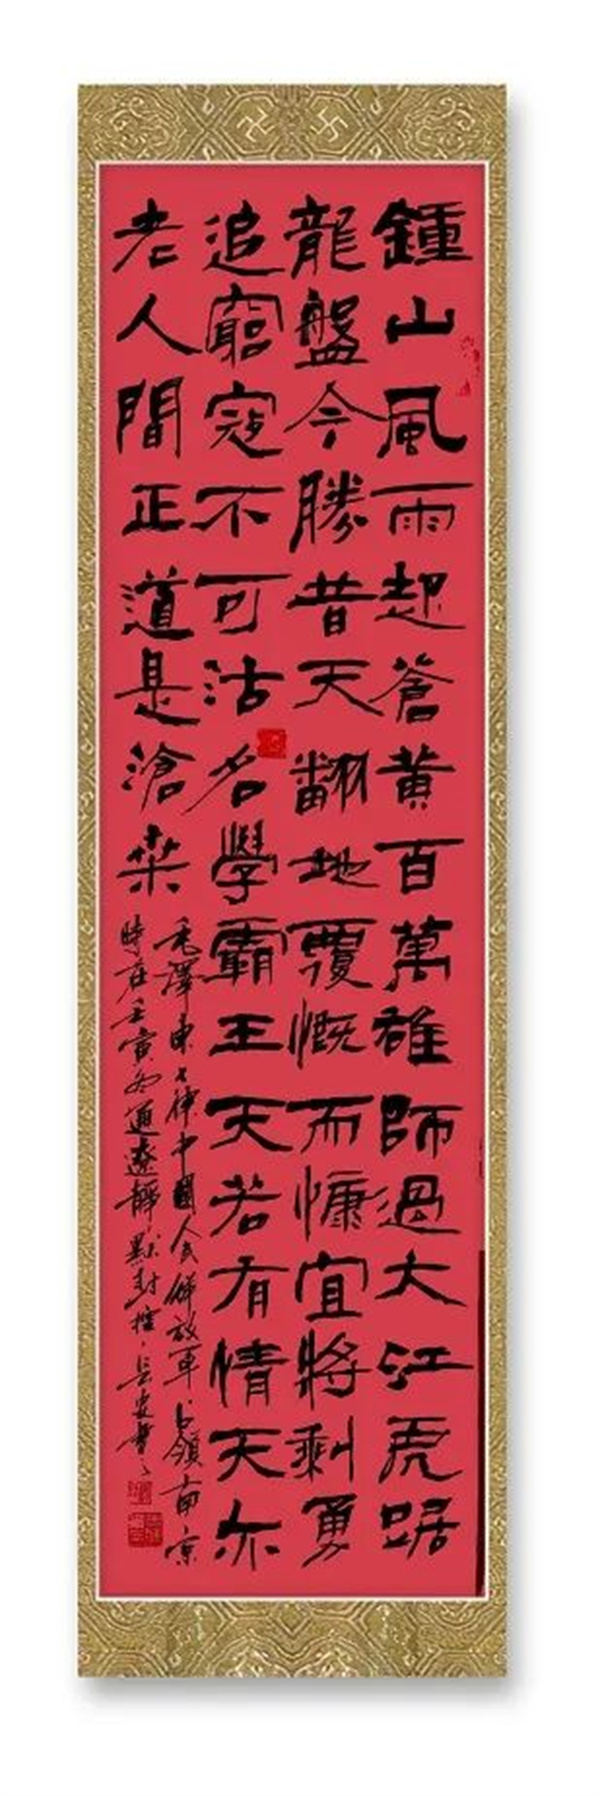 鍾山風雨起蒼黄百萬雄師過大江虎踞
龍盤今勝昔天翻地覆慨而慷宜將剩勇
追窮寇不可沽名學霸王天若有情天亦
老人間正道是滄桑
毛澤東七律中國人民解放軍占領南京
時在壬寅冬通遼靜默封控長安書